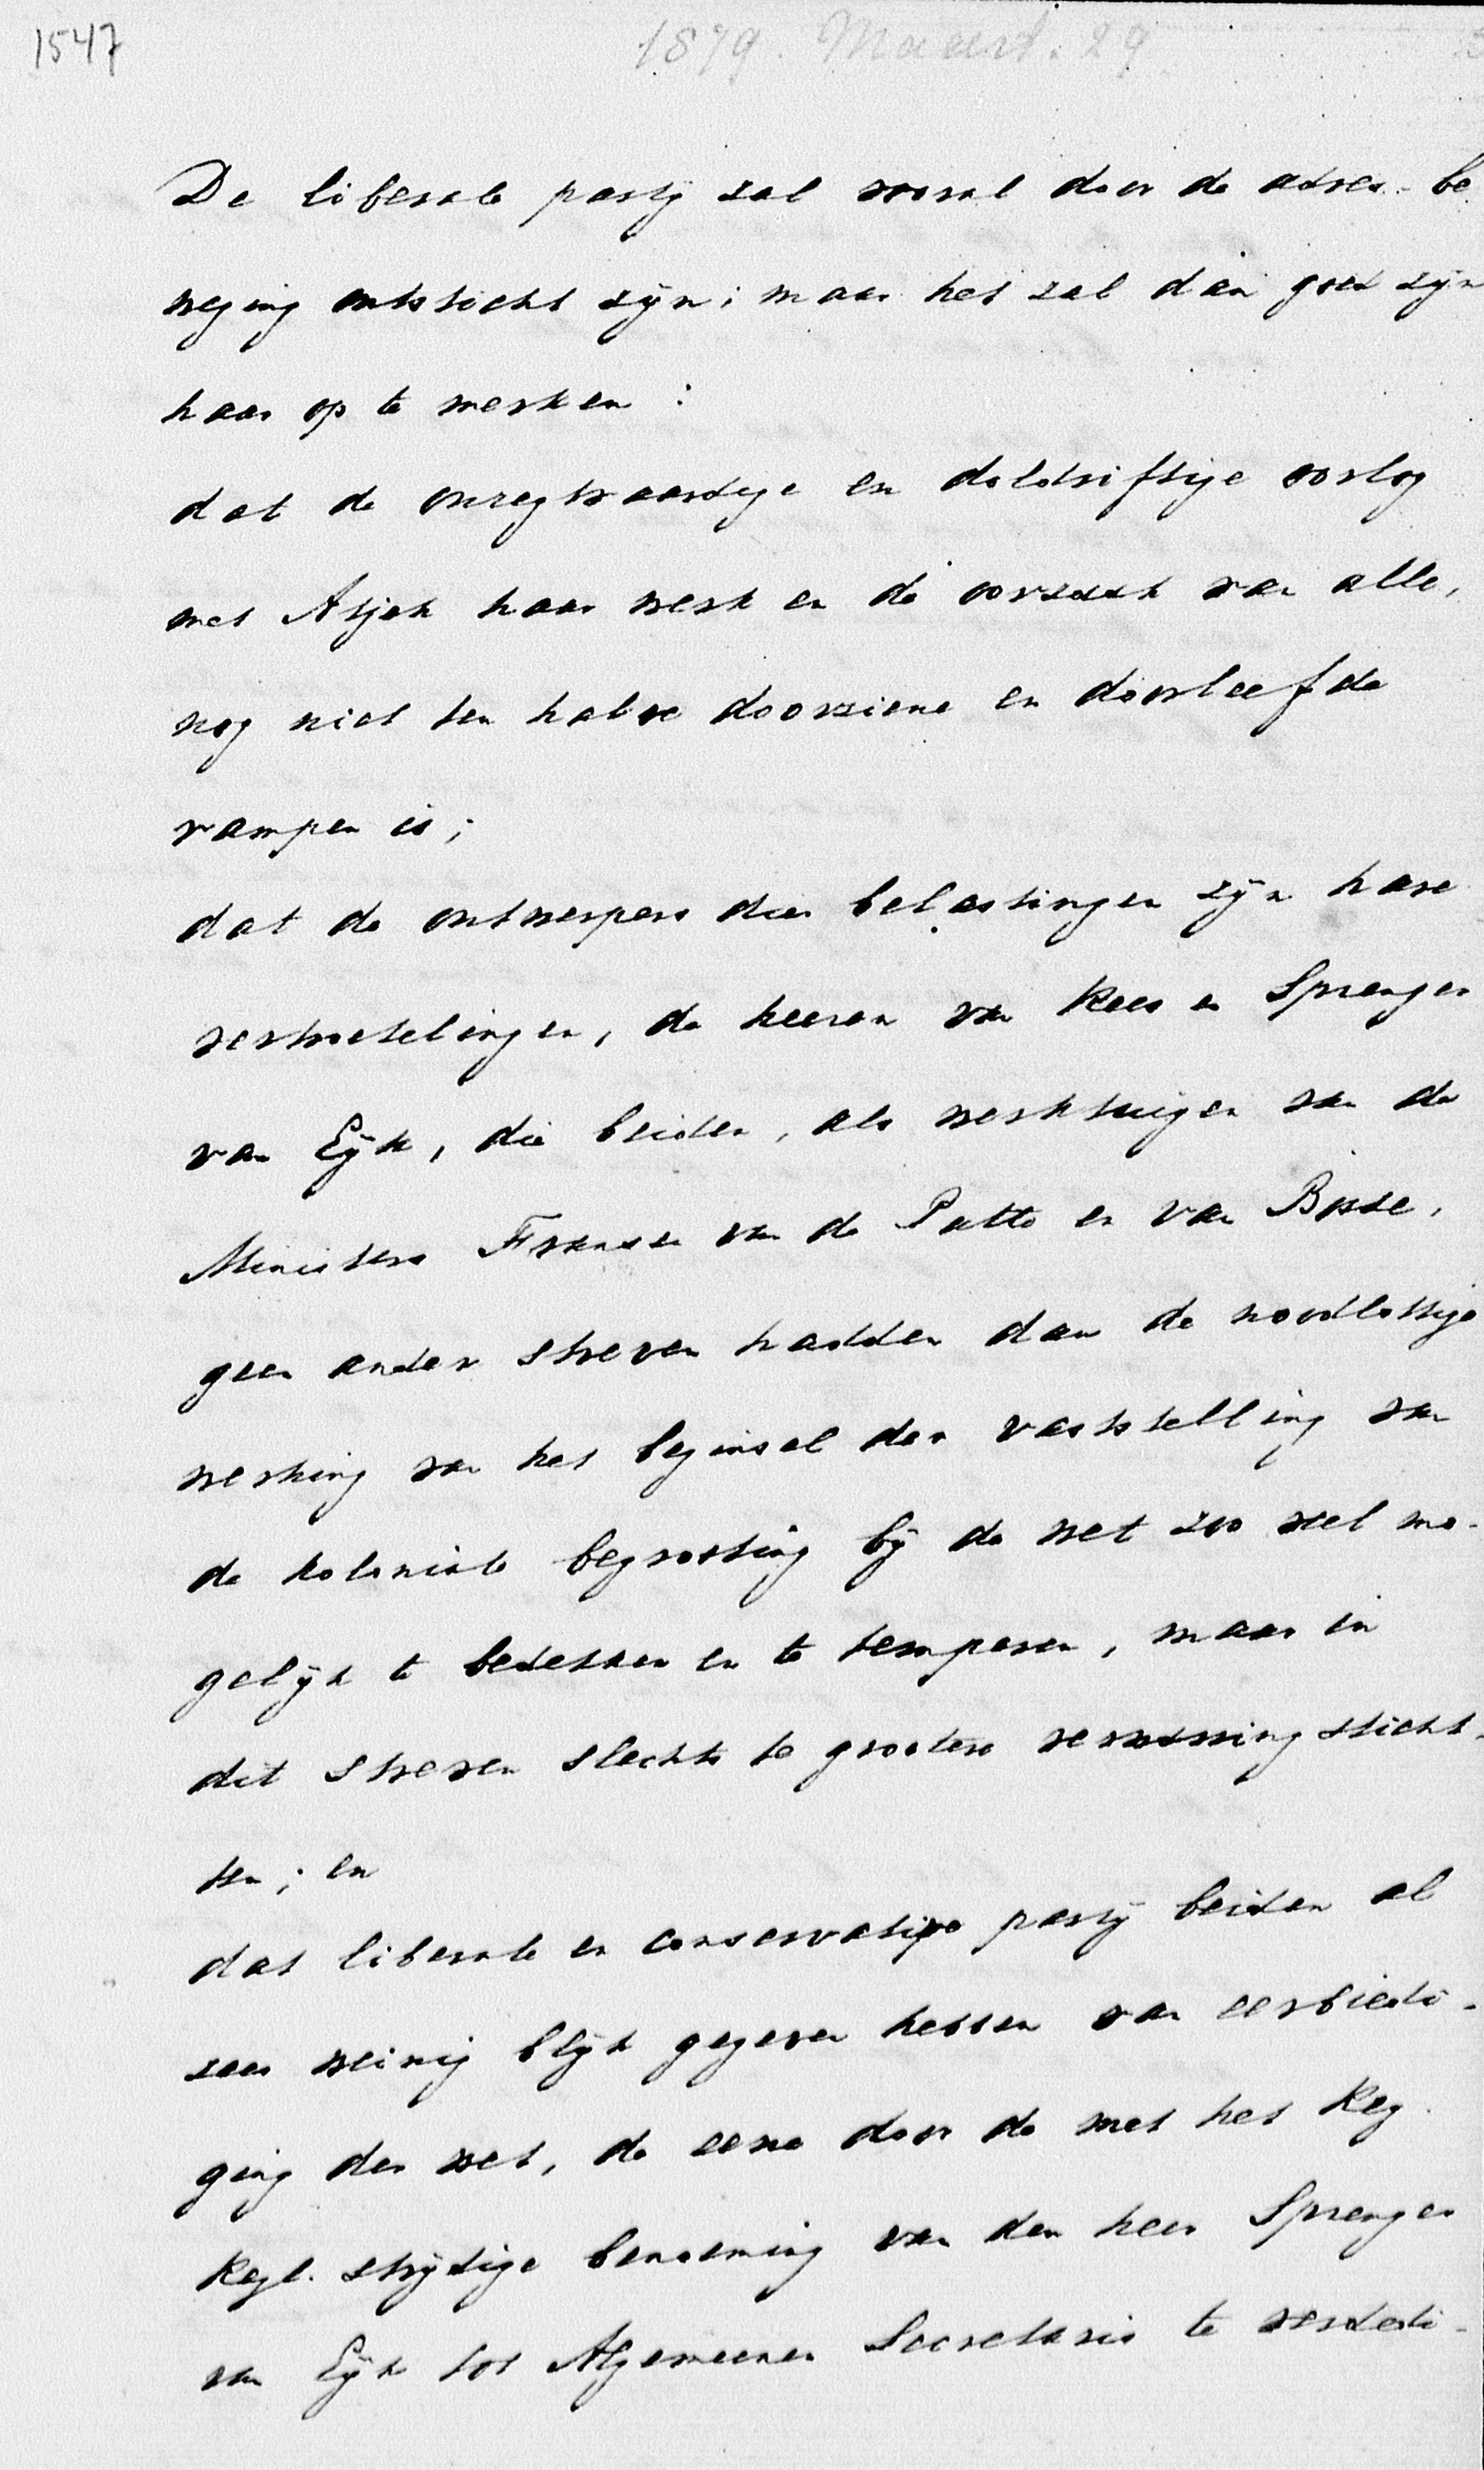 1547
1879. Maart. 29
De liberale party zal vooral door de adres-be
weging ontsticht zijn; maar het zal dan goed zijn
haar op te merken:
dat de onregtvaardige en doldriftige oorlog
met Atjeh haar werk en de oorzaak van alle,
nog niet ten halve doorziene en doorleefde
rampen is;
dat de ontwerpers dier belastingen zijn hare
vertroetelingen, de heeren van Rees en Sprenger
van Eijk, die beiden, als werktuigen van de
Ministers Fransen van de Putte en van Bosse,
geen ander streven hadden dan de noodlottige
werking van het beginsel der vaststelling van
de koloniale begrooting bij de wet zoo veel mo-
gelijk te bedekken en te temperen, maar in
dit streven slechts te grootere verwarring sticht-
ten; en
dat liberale en conservative party beiden al
zeer weinig blijk gegeven hebben van eerbiedi-
ging der wet, de eene door de met het Reg.
Regl. strijdige benoeming van den heer Sprenger
van Eijk tot Algemeenen Secretaris te verdedi-